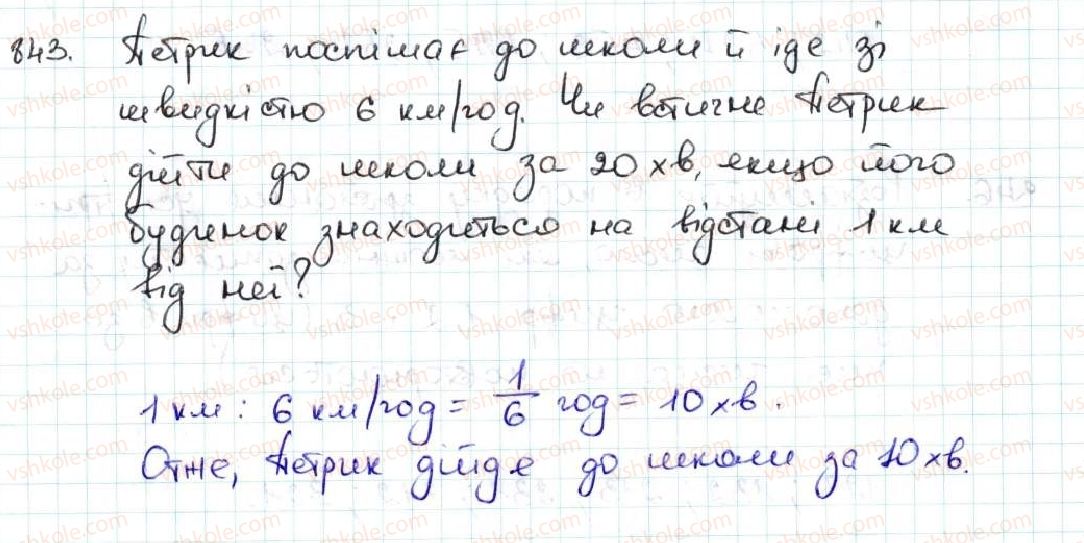 843. Петрик поспішає до школи й іде зі
швидкістю 6 км/год. Чи встигне Петрик
дійти до школи за 20 хв, якщо його
будинок знаходиться на відстані 1 км
від неї?
1 км : 6 км/год = 1/6 год = 10 хв.
Отже, Петрик дійде до школи за 10 хв.